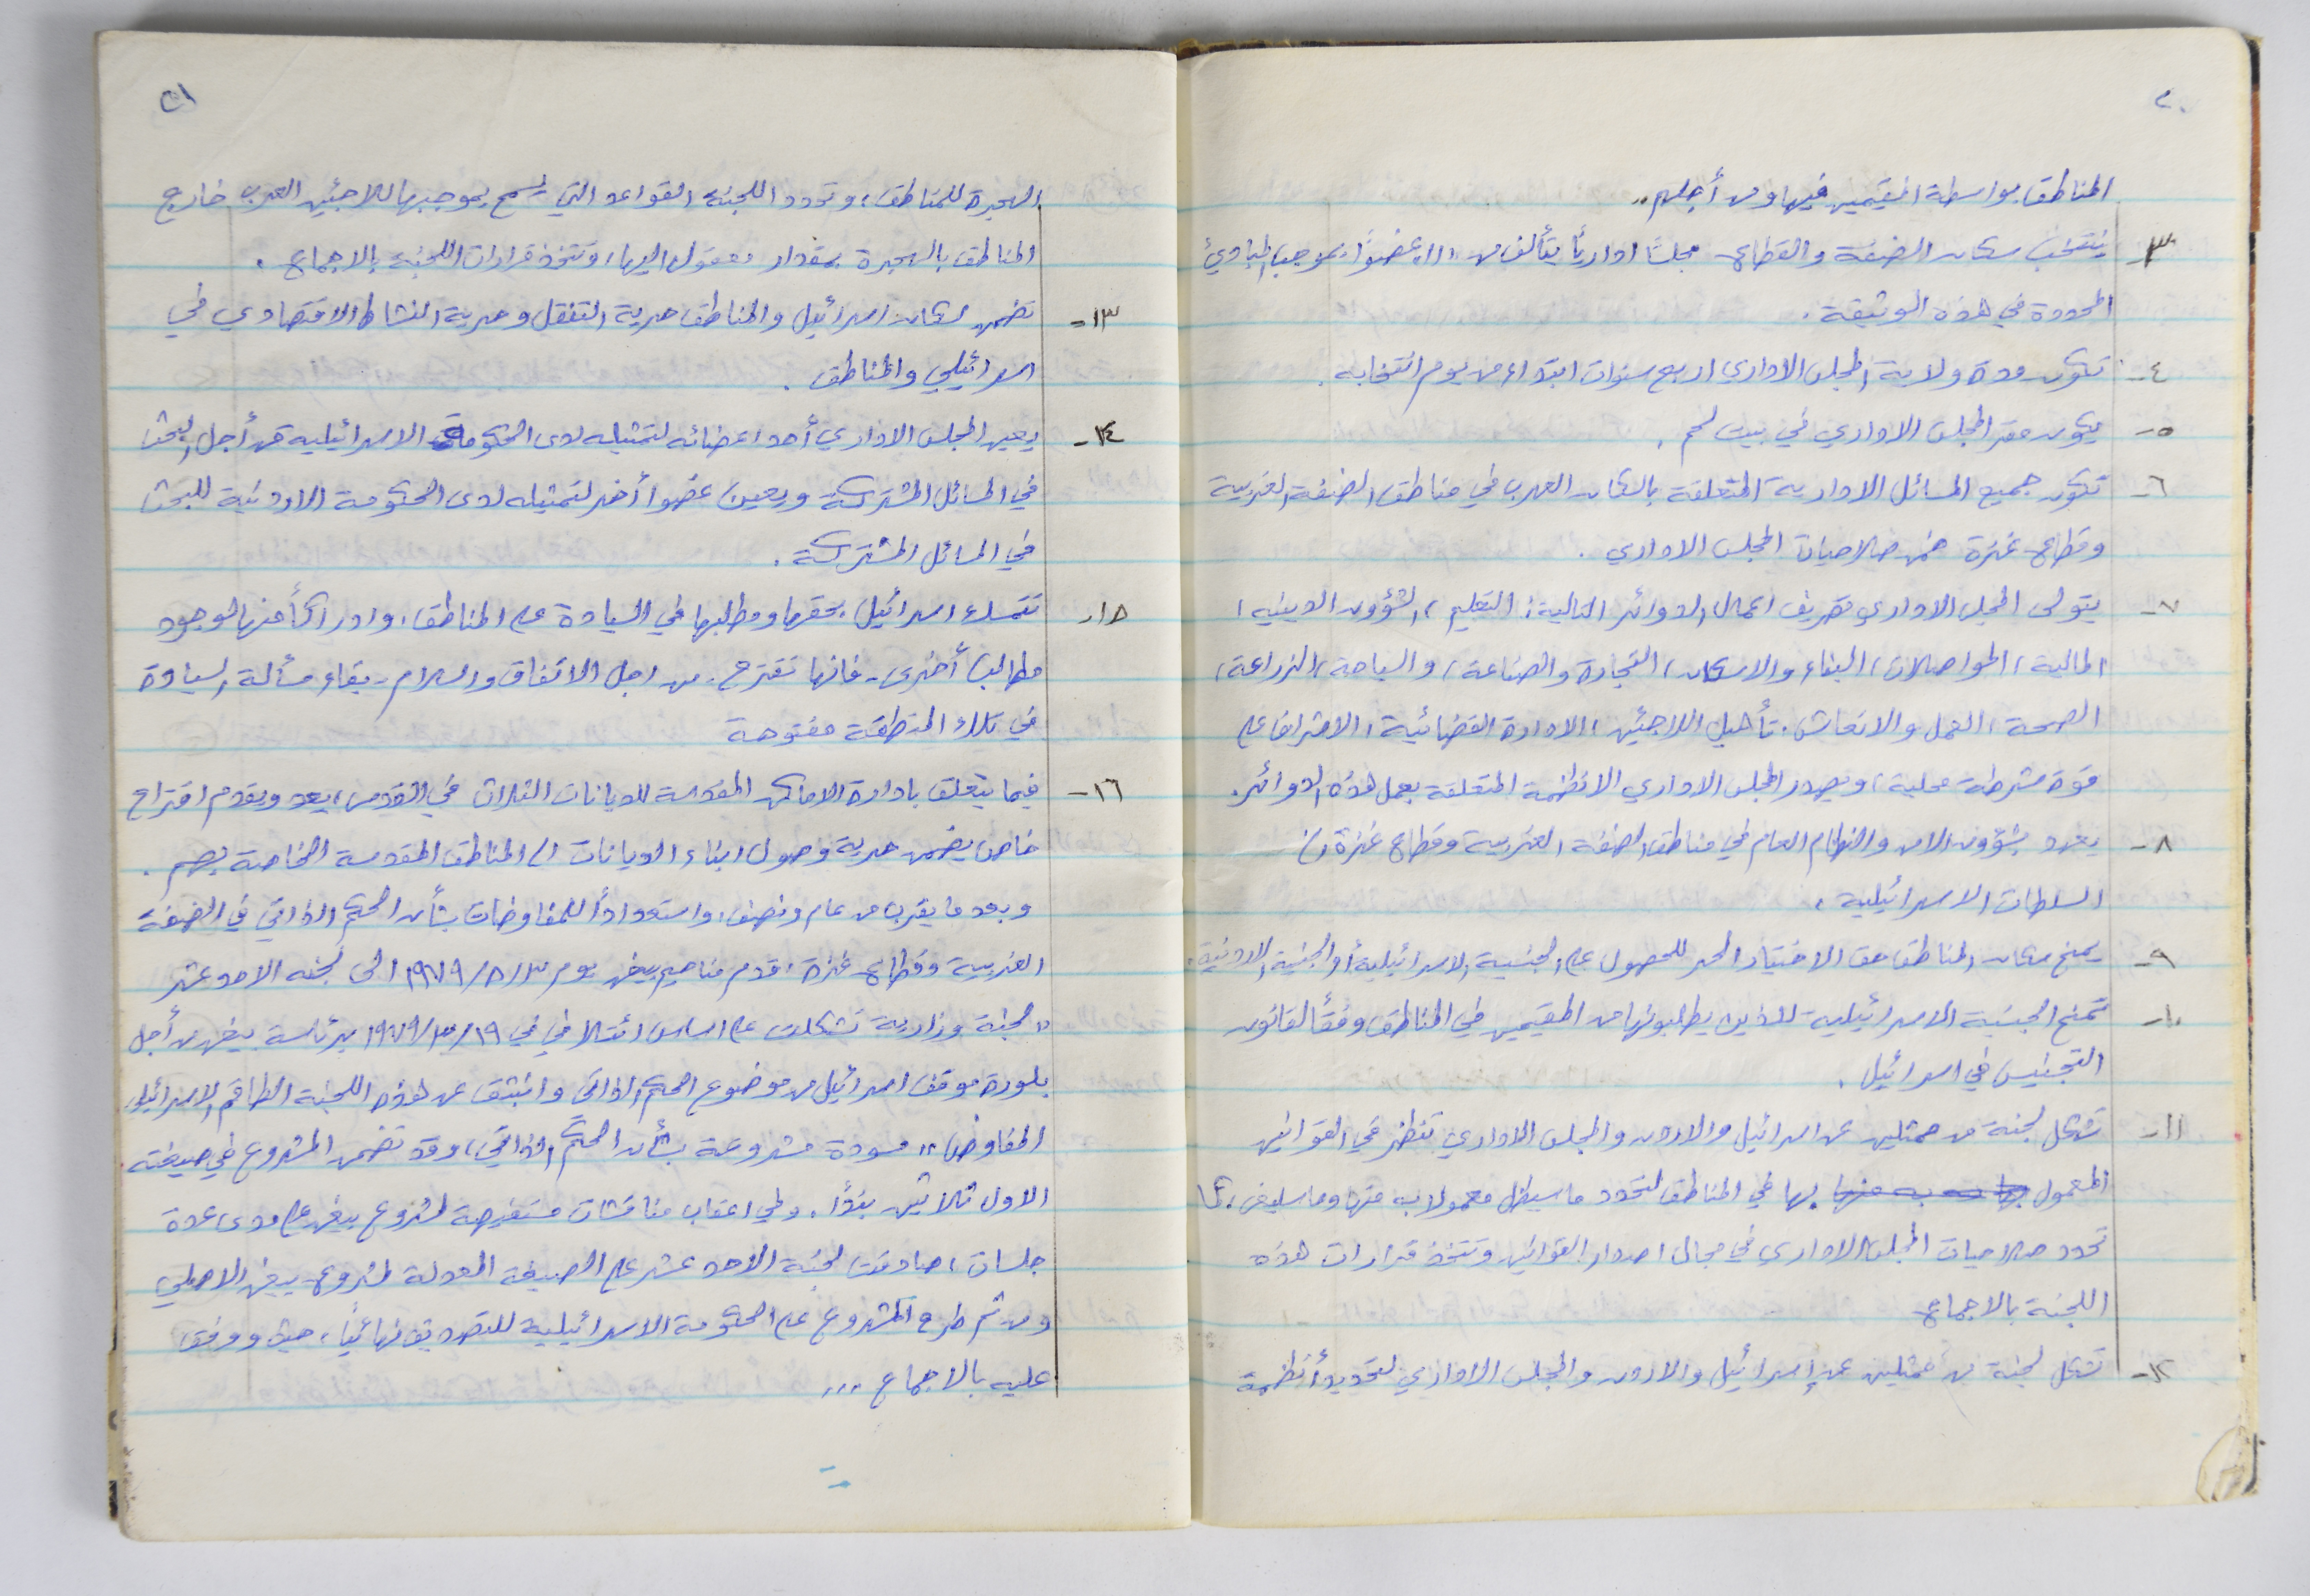 ٢٠
المناطق بواسطة المقيمين فيها ومن أجلهم..
٣- ينتخب سكان الضفة والقطاع مجلسًا اداريًا يتألف من "١١" عضوًا، بموجب المبادئ
المحددة في هذه الوثيقة.
٤- تكون مدة ولاية المجلس الاداري اربع سنوات ابتداء من يوم انتخابه.
٥- يكون مقر المجلس الاداري في بيت لحم.
٦- تكون جميع المسائل الادارية المتعلقة بالسكان العرب في مناطق الضفة الغربية
وقطاع غزة ضمن صلاحيات المجلس الاداري.
٧- يتولى المجلس الاداري تصريف اعمال الدوائر التالية: التعليم، الشؤون الدينية،
المالية، المواصلات، البناء والاسكان، التجارة والصناعة، والسياحة، الزراعة،
الصحة، العمل والانعاش. تأهيل اللاجئين، الادارة القضائية، الاشراف على
قوة شرطة محلية، ويصدر المجلس الاداري الانظمة المتعلقة بعمل هذه الدوائر.
٨- يعهد بشؤون الامن والنظام العام في مناطق الضفة الغربية وقطاع غزة إلى
السلطات الاسرائيلية.
٩- يمنح سكان المناطق حق الاختيار الحر للحصول على الجنسية الاسرائيلية أو الجنسية الاردنية.
١٠- تمنح الجنسية الاسرائيلية للذين يطلبونها من المقيمين في المناطق وفقًا لقانون
التجنيس في اسرائيل.
١١- تشكل لجنة من ممثلين عن اسرائيل والاردن والمجلس الاداري تنظر في القوانين
المعمول بها في المناطق لتحدد ما سيظل معمولا به منها وما سيلغى، كما
تحدد صلاحيات المجلس الاداري في مجال اصدار القوانين وتتخذ قرارات هذه
اللجنة بالاجماع
١٢- تشكل لجنة من ممثلين عن إسرائيل والاردن والمجلس الاداري لتحديد أنظمة
٢١
الهجرة للمناطق، وتحدد اللجنة القواعد التي يسمح بموجبها للاجئين العرب خارج
المناطق بالهجرة بمقدار معقول اليها، وتتخذ قرارات اللجنة بالاجماع.
١٣- تضمن لسكان اسرائيل والمناطق حرية التنقل وحرية النشاط الاقتصادي في
اسرائيل والمناطق.
١٤- يعين المجلس الاداري أحد اعضائه لتمثيله لدى الحكومة الاسرائيلية من أجل البحث
في المسائل المشتركة ويعين عضوا أخر لتمثيله لدى الحكومة الاردنية للبحث
في المسائل المشتركة.
١٥- تتمسك اسرائيل بحقها ومطالبها في السيادة على المناطق، وادراكًا منها لوجود
مطالب أخرى - فانها تقترح - من اجل الاتفاق والسلام - بقاء مسألة السيادة
في تلك المنطقة مفتوحة
١٦- فيما يتعلق بادارة الاماكن المقدسة للديانات الثلاث في القدس، يعد ويقدم اقتراح
خاص يضمن حرية وصول ابناء الديانات الى المناطق المقدسة الخاصة بهم.
وبعد ما يقرب من عام ونصف، واستعدادًا للمفاوضات بشأن الحكم الذاتي في الضفة
الغربية وقطاع غزة، قدم مناحيم بيغن يوم ١٩٧٩/٥/٣ الى لجنة الاحد عشر
"لجنة وزارية تشكلت على اساس ائتلافي في ١٩٧٩/٣/١٩ برئاسة بيغن من أجل
بلورة موقف اسرائيل من موضوع الحكم الذاتي وانبثق عن هذه اللجنة الطاقم الاسرائيلي
المفاوض" مسودة مشروعة بشأن الحكم الذاتي، وقد تضمن المشروع في صيغته
الاولى ثلاثين بندًا. وفي اعقاب مناقشات مستفيضة لمشروع بيغن على مدى عدة
جلسات، صادقت لجنة الاحد عشر على الصيغة المعدلة لمشروع بيغن الاصلي
ومن ثم طرح المشروع على الحكومة الاسرائيلية للتصديق نهائيًا، حيث ووفق
عليه بالاجماع ...